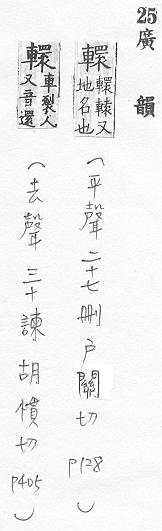 25廣韻
轘 轘轅又地名也
(平聲 二十七刪 戶關切 P128)
轘 車裂人又音還
(去聲 三十諫 胡慣切 P405)